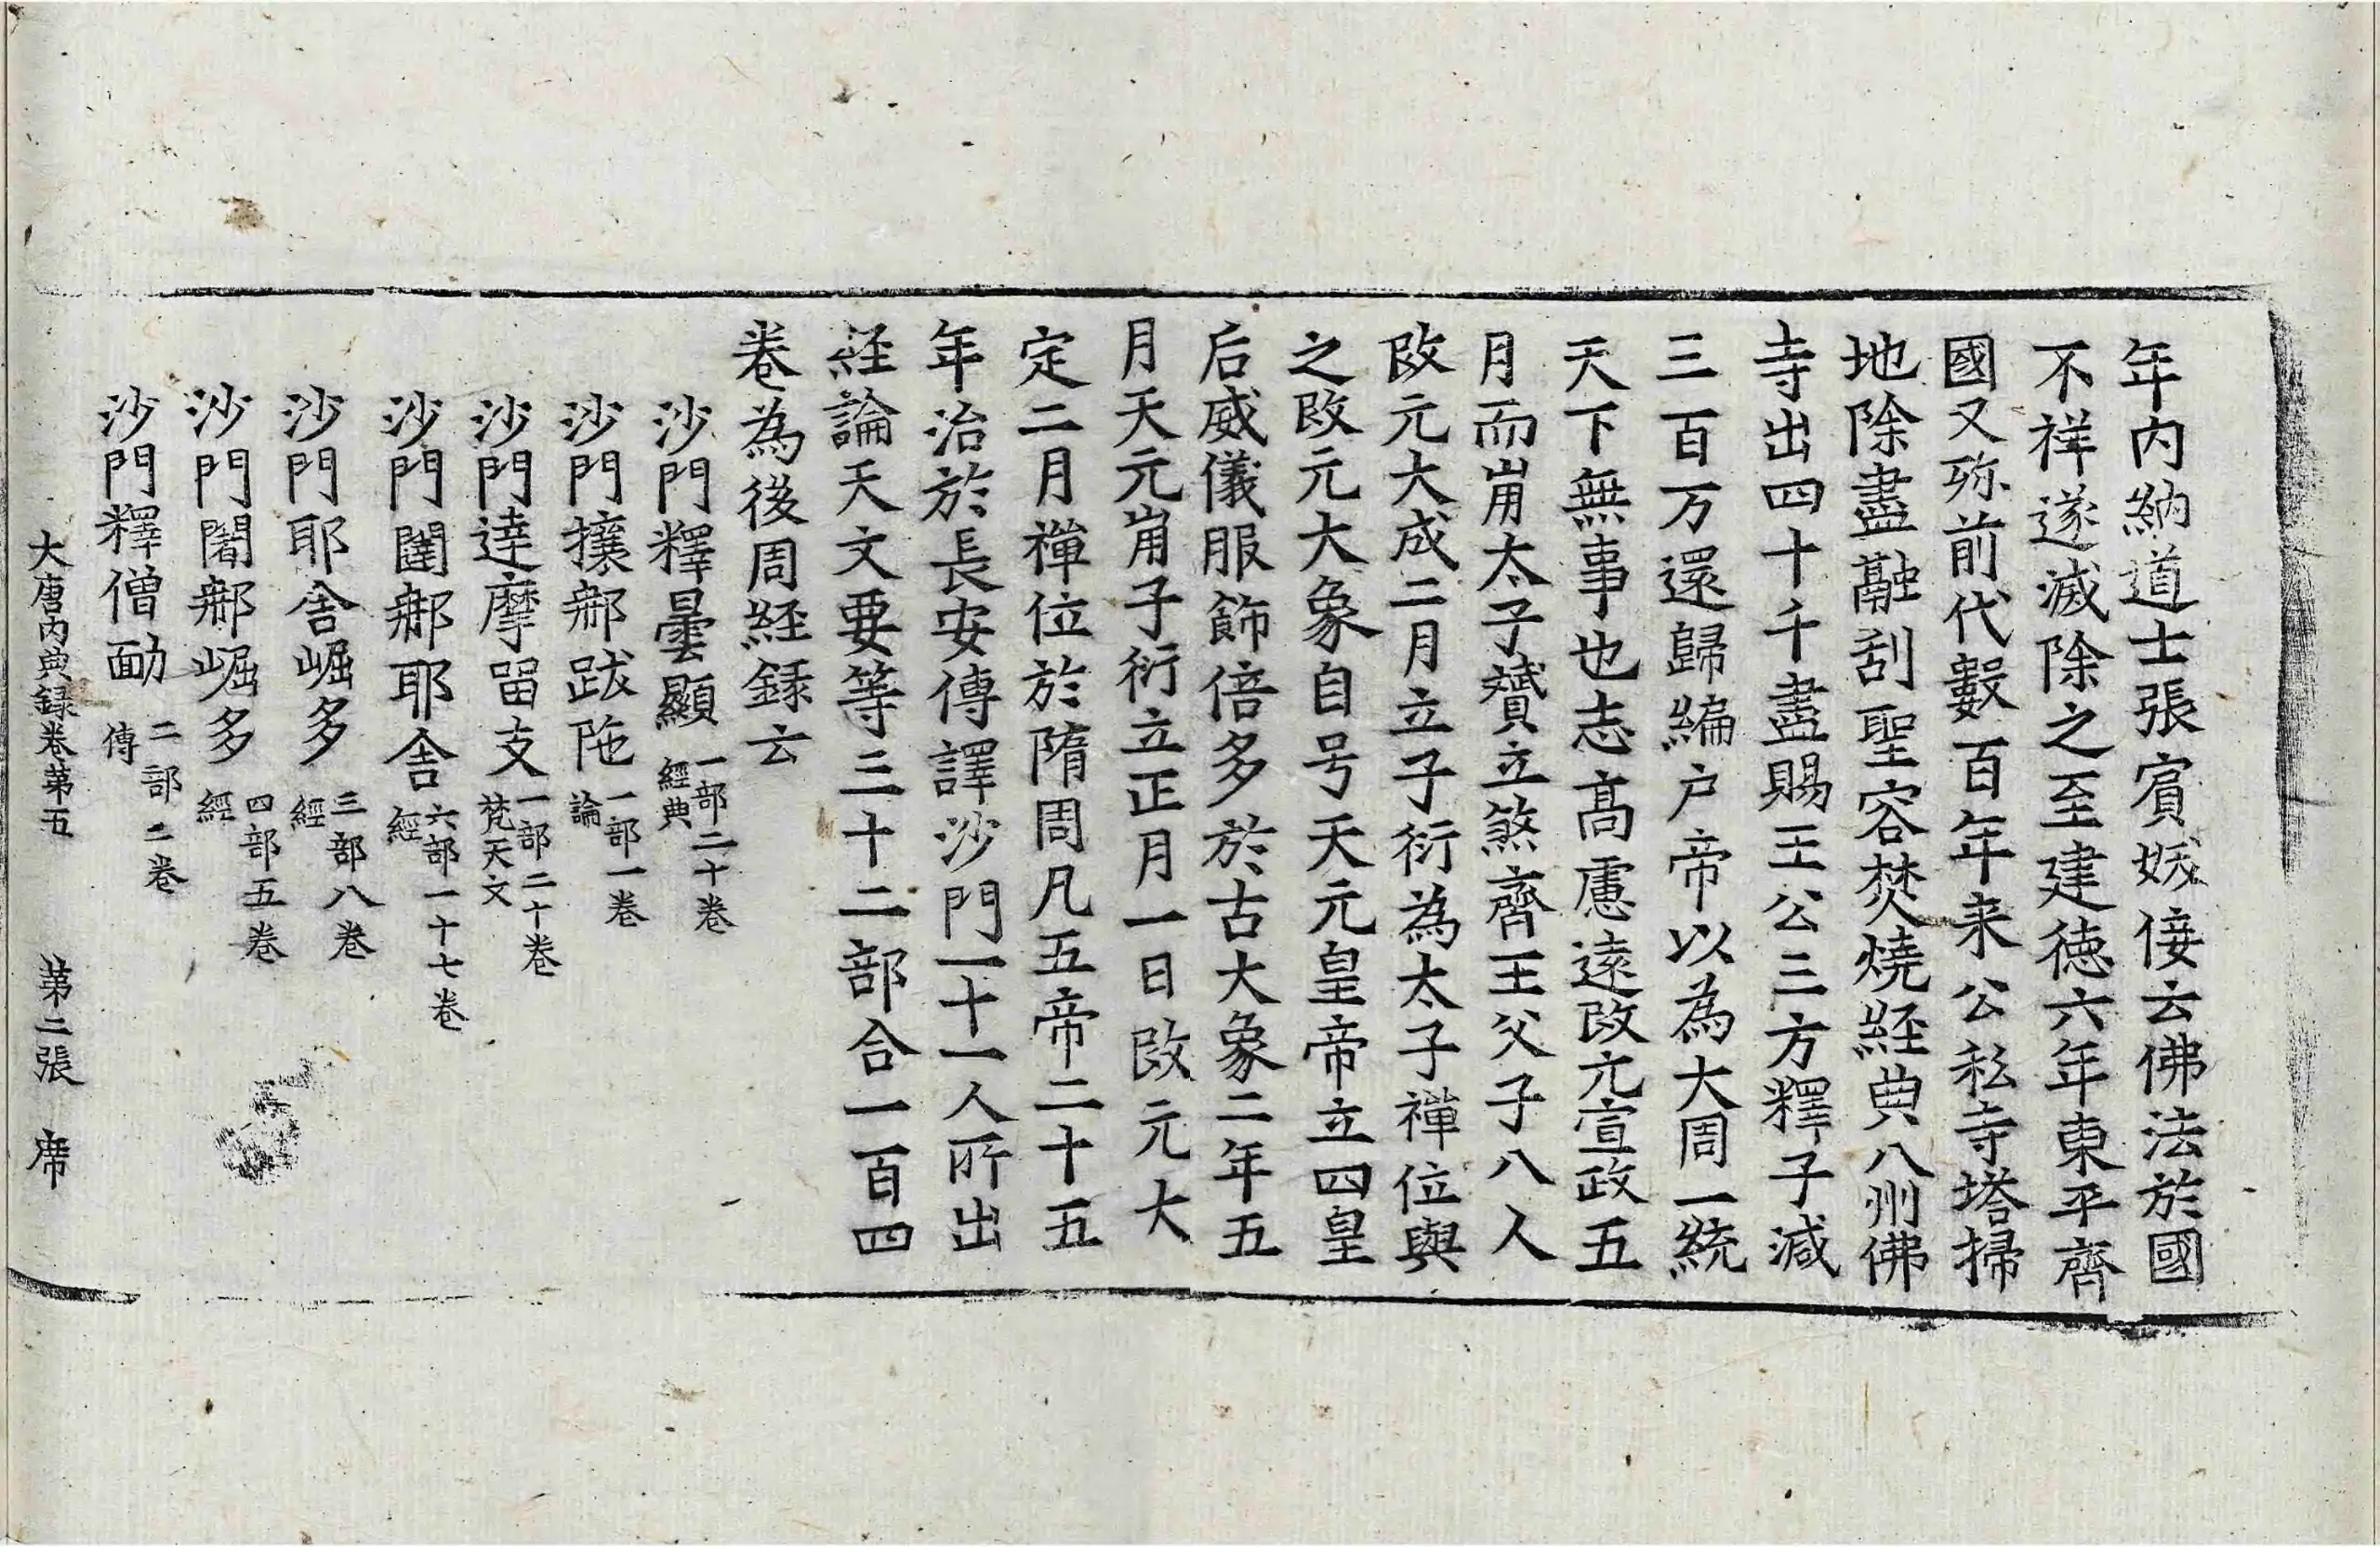 年內納道士張賓妖佞云佛法於國
不祥遂滅除之至建德六年東平齊
國又殄前代數百年来公私寺塔掃
地除盡融刮聖容焚燒経典八州佛
寺出四十千盡賜王公三方釋子減
三百万還歸編户帝以為大周一統
天下無事也志高慮遠改元宣政五
月而崩太子贇立煞齊王父子八人
改元大成二月立子衍為太子禪位與
之改元大象自号天元皇帝立四皇
后威儀服飾倍多於古大象二年五
月天元崩子衍立正月一日改元大
定二月禪位於隋周凡五帝二十五
年治於長安傳譯沙門一十一人所出
経論天文要等三十二部合一百四
卷為後周経録云
沙門釋曇顯一部二十卷經典
沙門攘那跋陁一部一卷論
沙門達摩留支一部二十卷梵天文
沙門闍那耶舍六部一十七卷經
沙門耶舍崛多三部八卷經
沙門闍那崛多四部五卷經
沙門釋僧勔二部二卷傳
大唐内典録卷苐五　苐二張　席